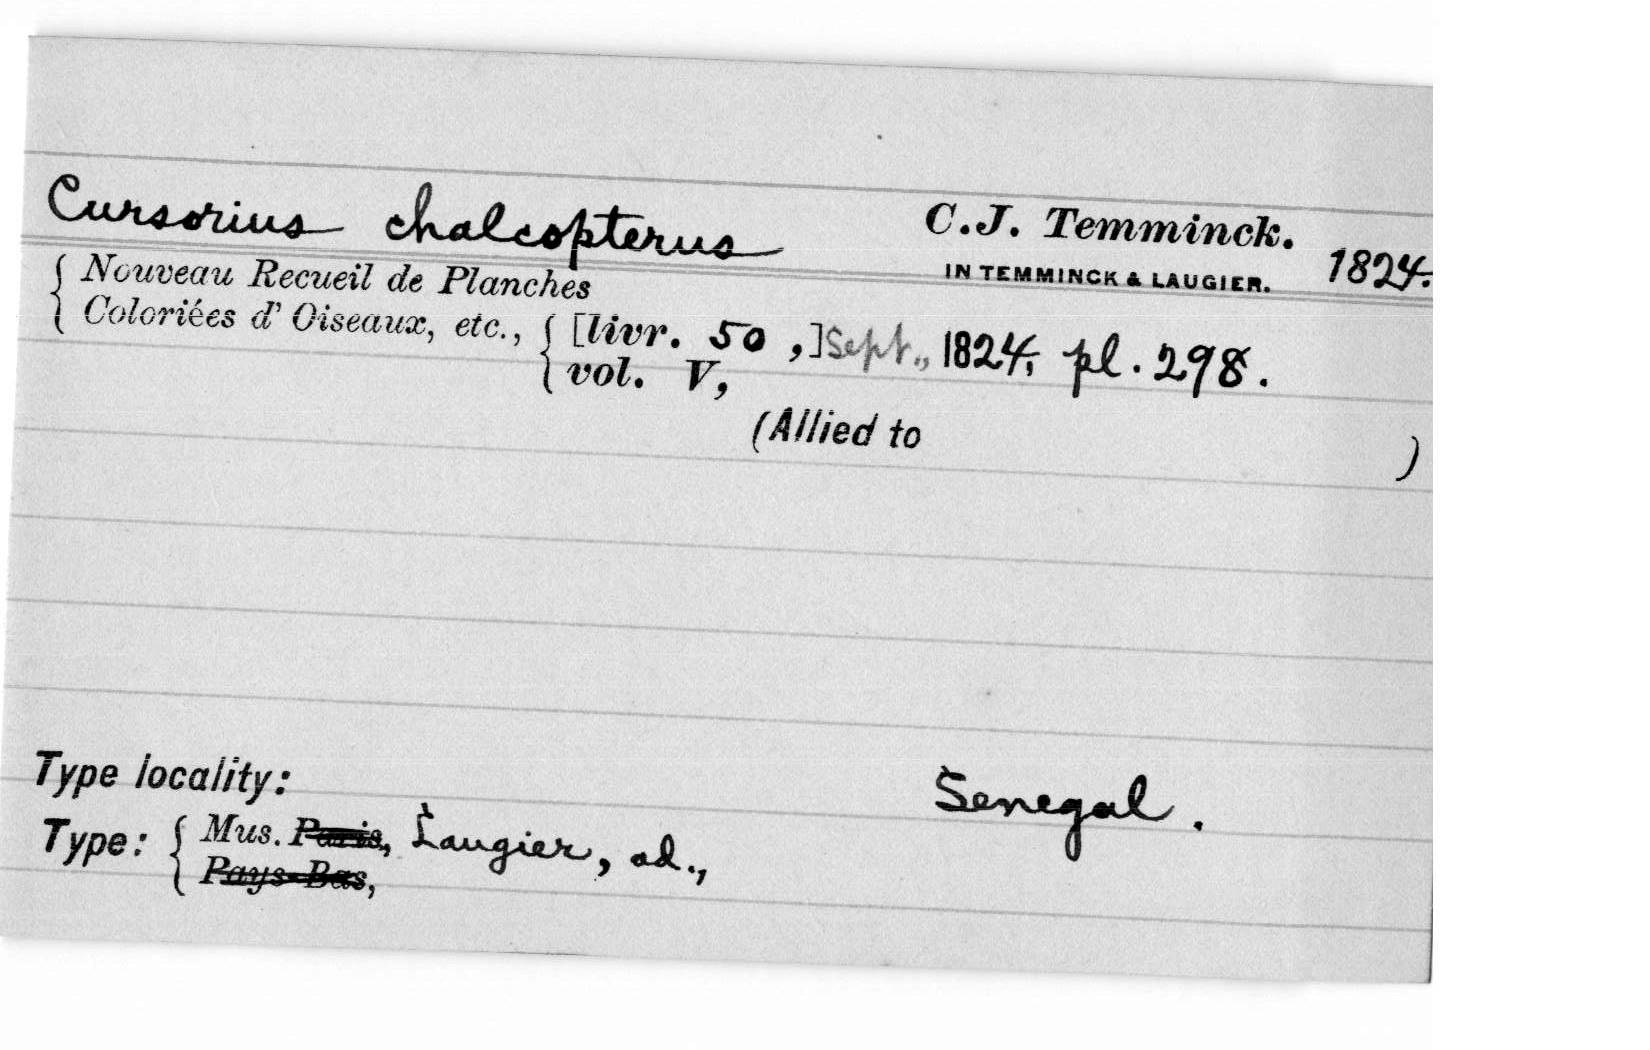 Cursorius chalcopterus C.J. Temminck. 1824.
IN TEMMINCK & LAUGIER.
Nouveau Recueil de Planches
Coloriées d' Oiseaux, etc., [livr. 50 ,] Sept., 1824, pl. 298.
vol. V,
(Allied to )
Type locality: Senegal.
Type: Mus. Paris, Laugier, ad.,
Pays-Bas,